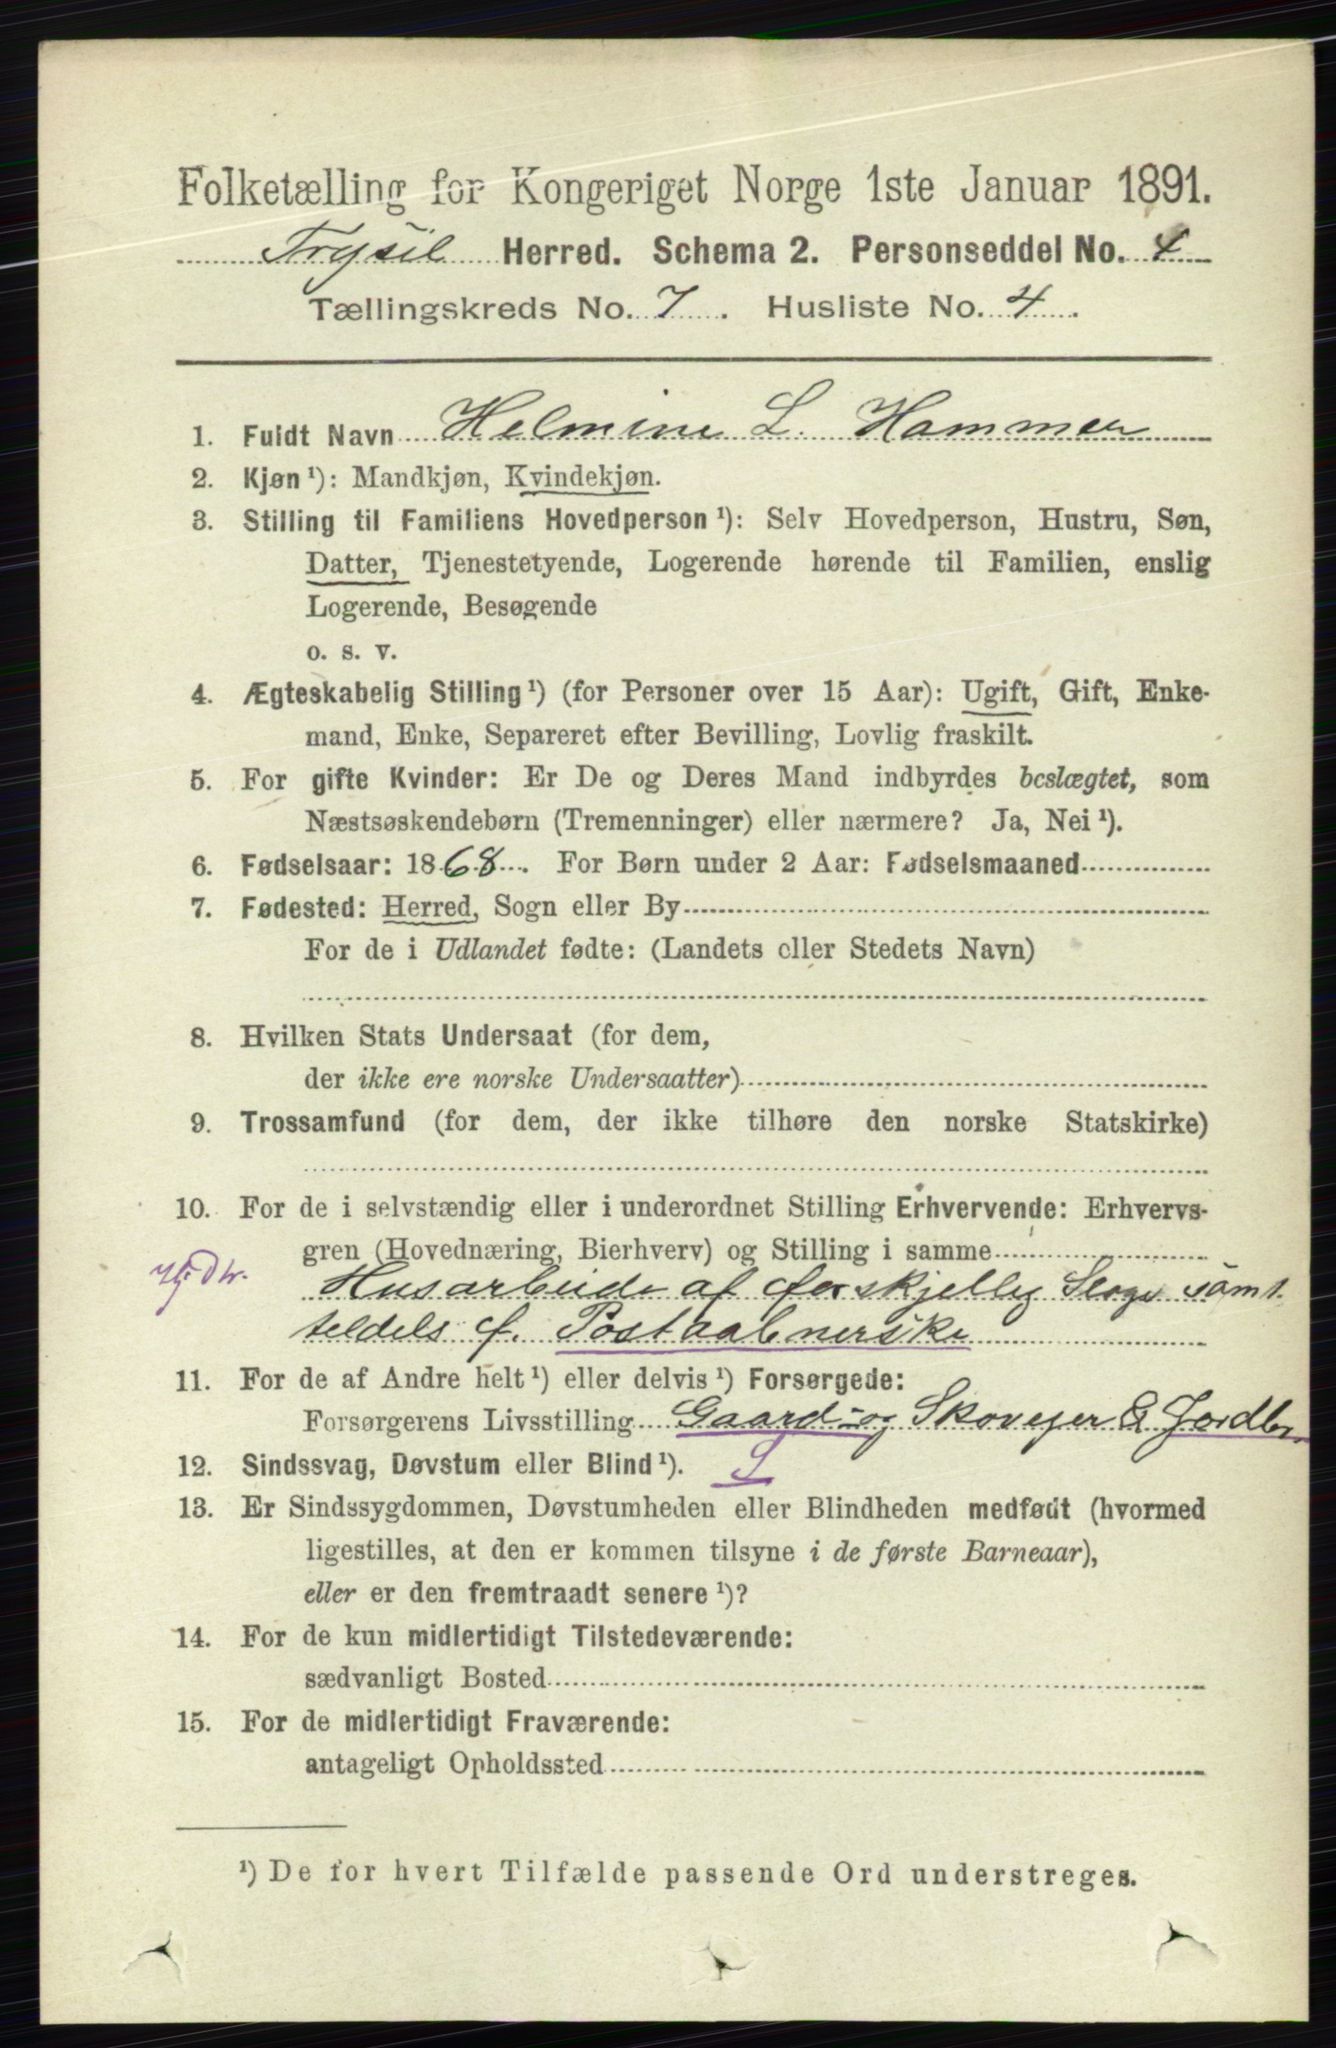 Folketælling for Kongeriget Norge 1ste Januar 1891.
Trysil Herred. Schema 2. Personseddel No. 4
Tællingskreds No. 7. Husliste No. 4.
1. Fuldt Navn Helmine L. Hammer
2. Kjøn¹): Mandkjøn, Kvindekjøn.
3. Stilling til Familiens Hovedperson¹): Selv Hovedperson, Hustru, Søn,
Datter, Tjenestetyende, Logerende hørende til Familien, enslig
Logerende, Besøgende
o. s. v.
4. Ægteskabelig Stilling¹) (for Personer over 15 Aar): Ugift, Gift, Enke-
mand, Enke, Separeret efter Bevilling, Lovlig fraskilt.
5. For gifte Kvinder: Er De og Deres Mand indbyrdes beslægtet, som
Næstsøskendebørn (Tremenninger) eller nærmere? Ja, Nei¹).
6. Fødselsaar: 1868. For Børn under 2 Aar: Fødselsmaaned
7. Fødested: Herred, Sogn eller By
For de i Udlandet fødte: (Landets eller Stedets Navn)
8. Hvilken Stats Undersaat (for dem,
der ikke ere norske Undersaatter)
9. Trossamfund (for dem, der ikke tilhøre den norske Statskirke)
10. For de i selvstændig eller i underordnet Stilling Erhvervende: Erhvervs-
gren (Hovednæring, Bierhverv) og Stilling i samme
Husarbeide af forskjellig Slags samt
teldels f. Postaabnerske
11. For de af Andre helt¹) eller delvis¹) Forsørgede:
Forsørgerens Livsstilling Gaard- og Skovejer & Jordbr.
12. Sindssvag, Døvstum eller Blind¹). S
13. Er Sindssygdommen, Døvstumheden eller Blindheden medfødt (hvormed
ligestilles, at den er kommen tilsyne i de første Barneaar),
eller er den fremtraadt senere¹)?
14. For de kun midlertidigt Tilstedeværende:
sædvanligt Bosted
15. For de midlertidigt Fraværende:
antageligt Opholdssted
¹) De for hvert Tilfælde passende Ord understreges.